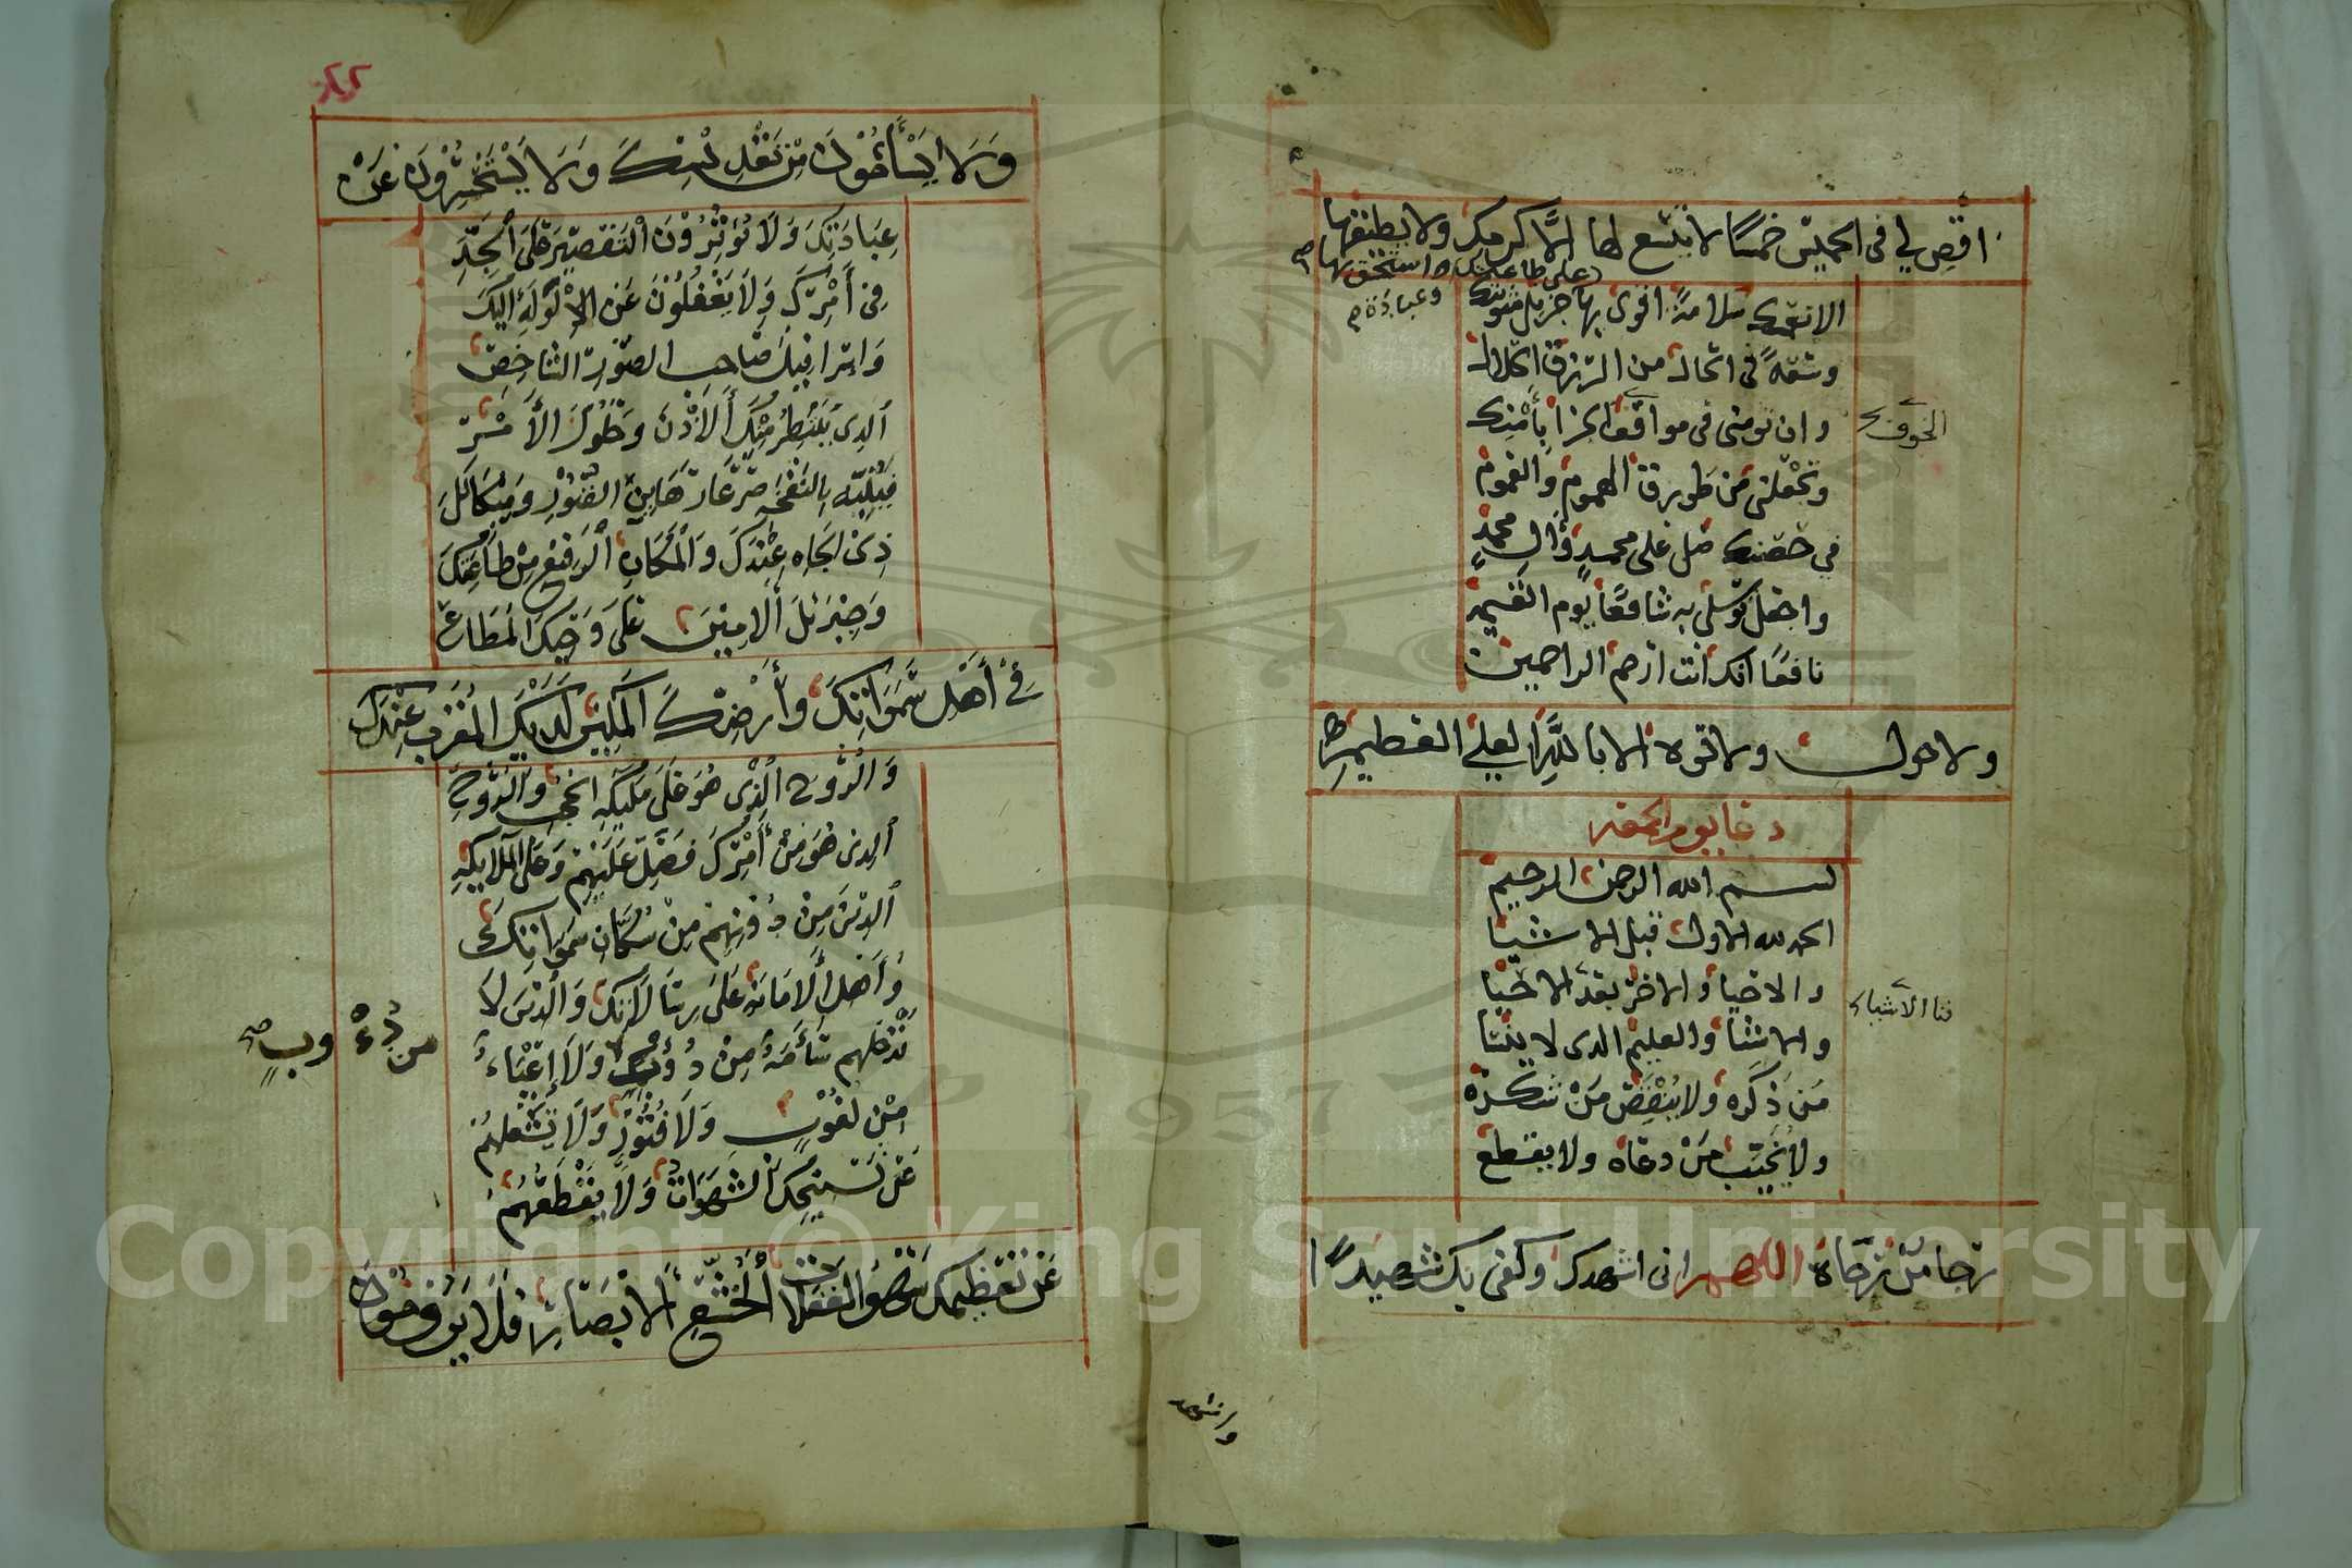 اقض لي في الخميس خمسا لا يتسع لها الا كرمك ولا يطيقها
الا نعمك سلامة اقوى بها على طاعتك واستحق بها جزيل مثوبتك
وعبادة
وسعة في الحال من الرزق الحلال
وان تومنى في مواقف الخوف بأمنك
الخوف
وتجعلنى من طوارق الهموم والغموم
في حصنك صل على محمد وال محمد
واجعل توسلي به شافعا يوم القيمة
نافعا انك انت ارحم الراحمين
ولا حول ولا قوة الا بالله العلي العظيم
دعا يوم الجمعه
بسم الله الرحمن الرحيم
الحمد لله الاول قبل الاشيا
والاحيا والاخر بعد الاحيا
فنا الاشياء
والاشيا والعليم الذى لا ينسا
من ذكره ولا ينقص من شكره
ولا يخيب من دعاه ولا يقطع
رجا من رجاه اللهم انى اشهدك وكفى بك شهيدا
واشهد
ولا يسأمون من تقديسك ولا يستحسرون عن
عبادتك ولا يوثرون التقصير على الجد
في أمرك ولا يغفلون عن الوله اليك
واسرافيل صاحب الصور الشاخص
الذى ينتظر منك الاذن وحلول الامر
فينبه بالنفخه صرعا رهاين القبور وميكائل
ذى الجاه عندك والمكان الرفيع من طاعتك
وجبرئل الامين على وحيك المطاع
في أهل سمواتك وأرضك المكين لديك المقرب عندك
والروح الذى هو على مليكه الحجب والروح
الذى هو من أمرك فصل عليهم وعلى الملايكه
الذين من دونهم من سكان سمواتك
وأهل الامانه على رسالاتك والذين لا
تدخلهم سأمة من دؤب ولا إعياء
من دءوب
من لغوب ولا فتور ولا تشغلهم
عن تسبيحك الشهوات ولا يقطعهم
عن تعظيمك سهو الغفلات الخشع الابصار فلا يرومون